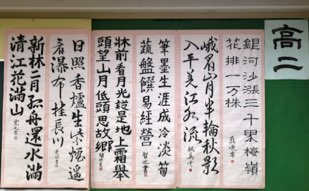 高二
銀河沙漲三千里梅嶺
花排一万株
峨眉山月半輪秋影
入平羌江水流
筆墨生涯成冷淡筍
蔬盤饌易經營
牀前看月光疑是地上霜舉
頭望山月低頭思故鄉
日照香爐生紫煙遙
看瀑布挂長川
新林二月孤舟還水滿
清江花滿山